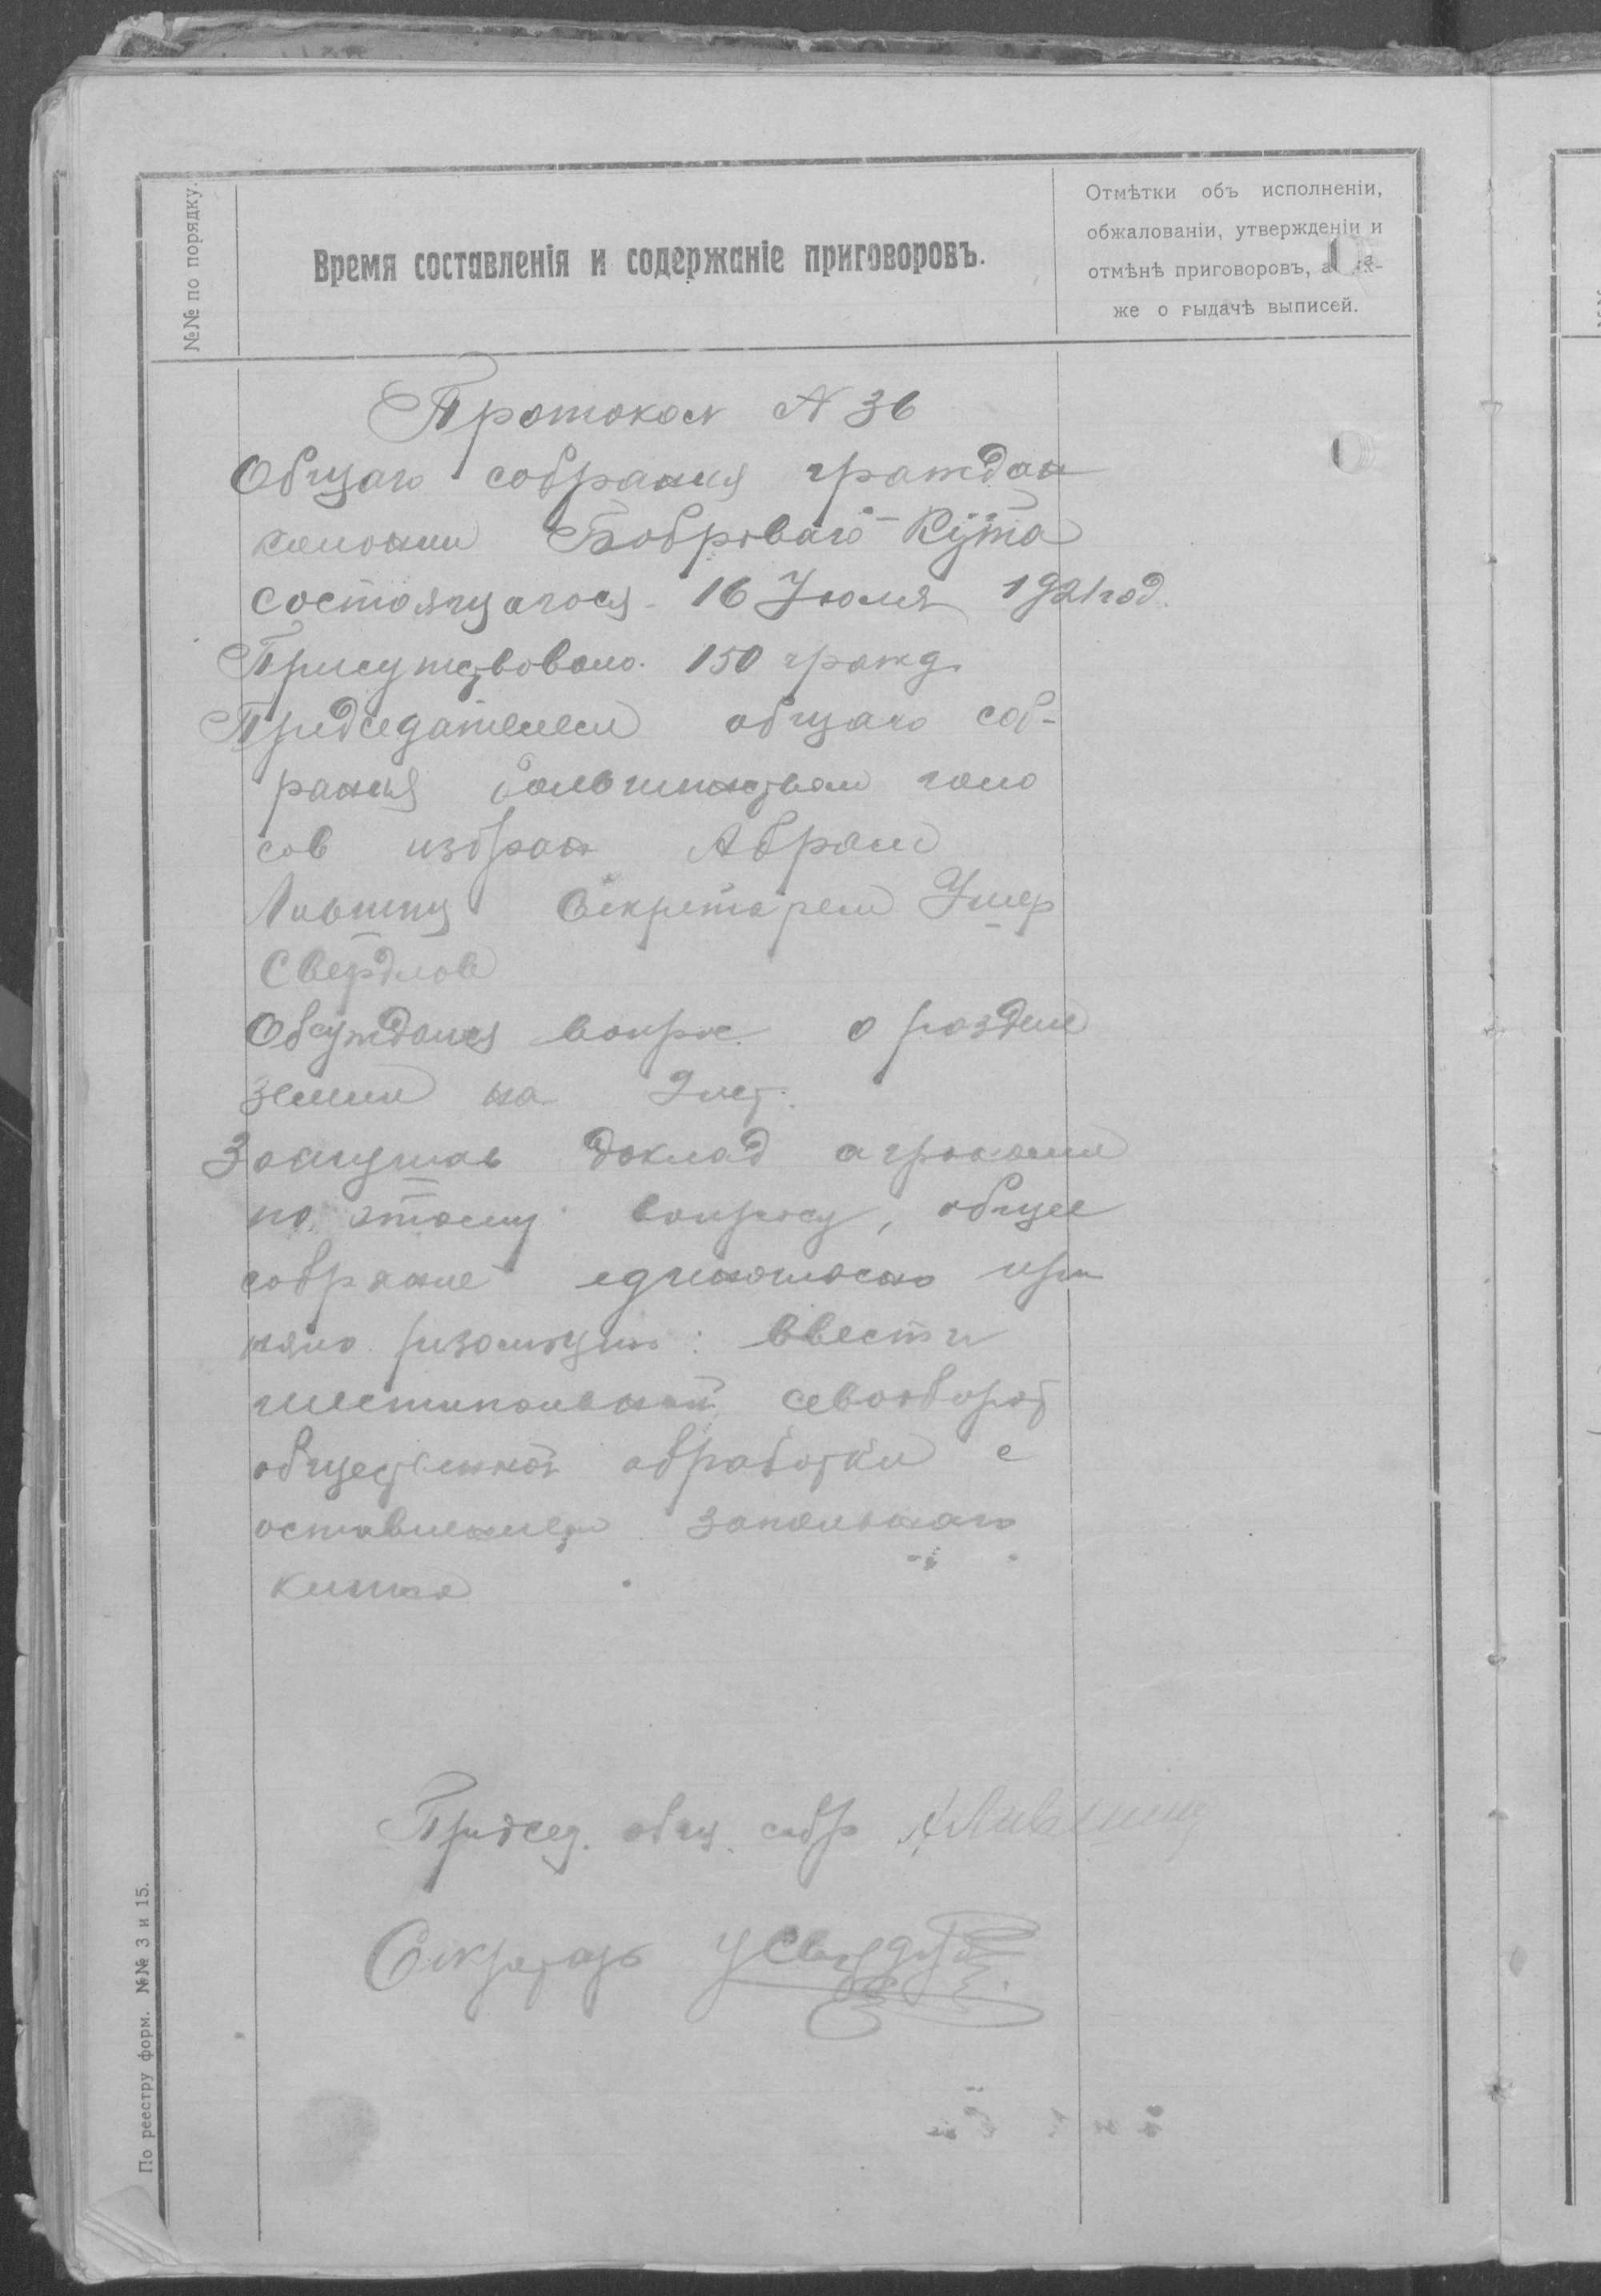 №№ по порядку.
Время составленія и содержаніе приговоровъ.
Отмѣтки объ исполненіи,
обжалованіи, утвержденіи и
отмѣнѣ приговоровъ, а
же о выдачѣ выписей.
Протокол N 36
Общаго собрания граждан
колонии Боброваго-Кута
состоящагося 16 Июля 1921 год.
Присутствовало 150 гражд.
Председателем общаго соб-
рания большинством голо
сов избран Абрам
Лившиц Секретарем Умер
Свердлов
Обсуждался вопрос о разделе
земли на
Заслушав доклад агронома
по этому вопросу, общее
собрание единогласно при
няло резолюцию: ввести
шестипольный севооборот
общественной обработки с
оставлением запольнаго
клина
Председ. общ. собр АЛившиц
Секретарь УСвердлов
По реестру форм. №№ 3 и 15.